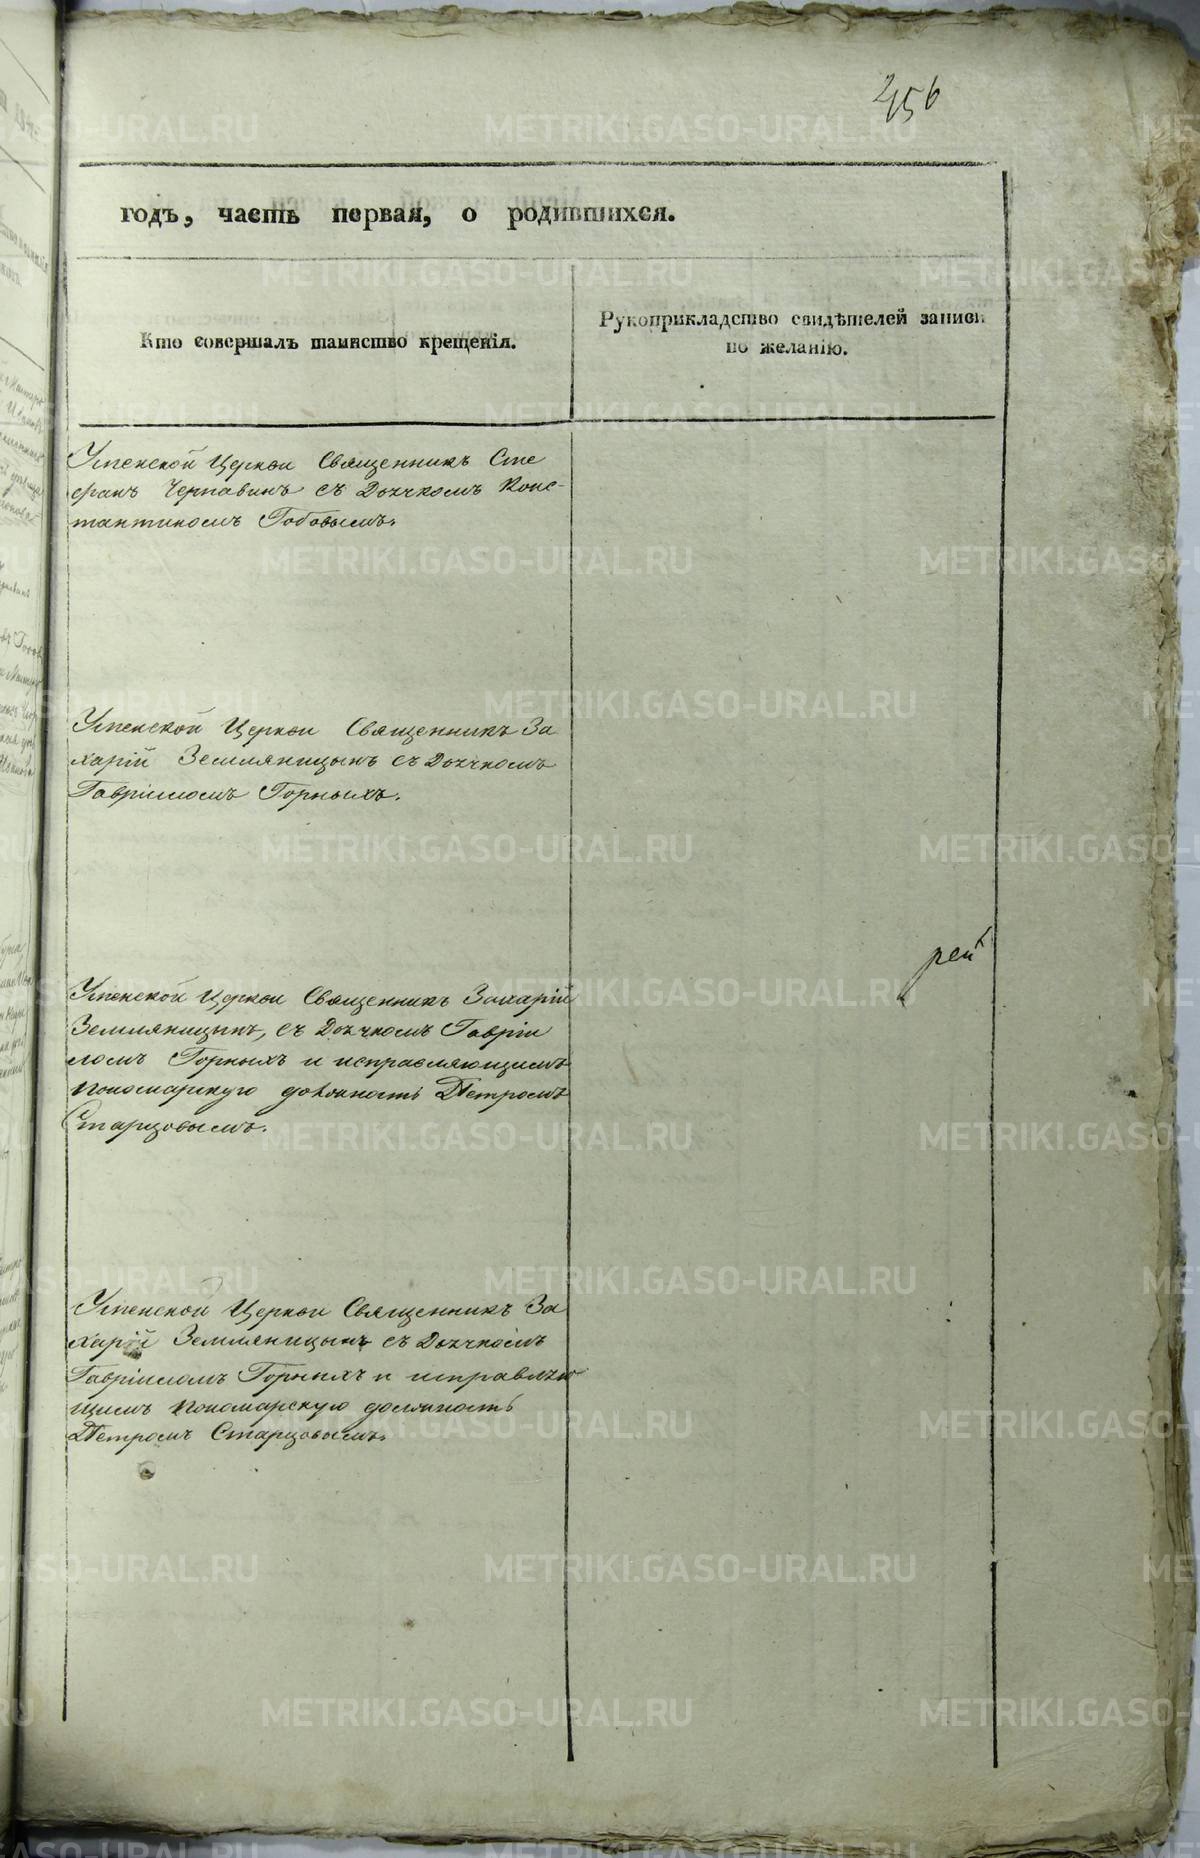 456
годъ, часть первая, о родившихся.
Кто совершалъ таинство крещенія.
Рукоприкладство свидѣтелей записи
по желанію.
Успенской Церкви Священникъ Сте
фанъ Чернавинъ съ Дьячкомъ Конс-
тантиномъ Гобовымъ.
Успенской Церкви Священникъ За
харій Земляницынъ съ Дьячкомъ
Гавріиломъ Горныхъ.
Успенской Церкви Священникъ Захарій
Земляницынъ, съ Дьячкомъ Гавріи
ломъ Горныхъ и исправляющимъ
Пономарскую должность Петромъ
Старцовымъ.
Успенской Церкви Священникъ За
харій Земляницынъ съ Дьячкомъ
Гавріиломъ Горныхъ и исправляю
щимъ Пономарскую должность
Петромъ Старцовымъ.
рей
METRIKI.GASO-URAL.RU